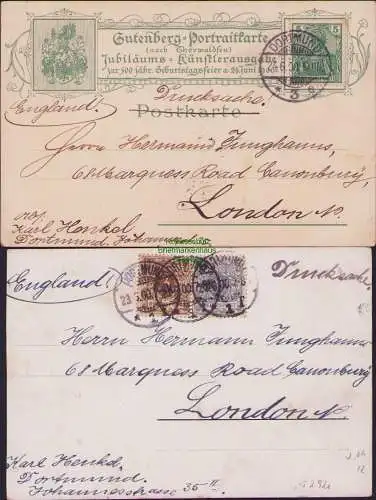 Gutenberg-Portraitkarte
(nach Thorwaldsen)
Jubiläums-Künstlerausgabe
zur 500 jähr. Geburtstagsfeier a. 24. Juni
5
DORTMUND
England!
Drucksache!
Postkarte
Herrn Hermann Junghanns,
68 Marquess Road Canonbury,
London N.
Karl Henkel
Dortmund,
England!
Drucksache
DORTMUND
Herrn Hermann Junghanns
68 Marquess Road Canonbury
London N.
Karl Henkel,
Dortmund,
Johannesstrasse 35 II